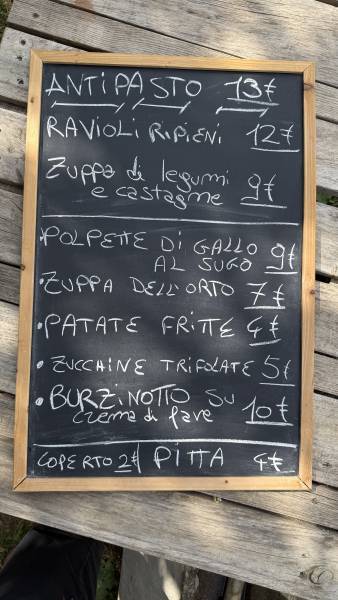 ANTIPASTO 13€
RAVIOLI RIPIENI 12€
Zuppa di legumi
e castagne 9€
• POLPETTE DI GALLO
AL SUGO 9€
• ZUPPA DELL'ORTO 7€
• PATATE FRITTE 4€
• ZUCCHINE TRIFOLATE 5€
• BURZINOTTO SU
crema di fave 10€
COPERTO 2€ PITTA 4€